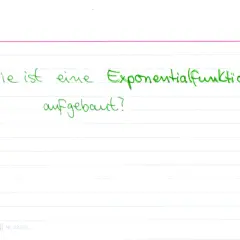 ie ist eine Exponentialfunktio
aufgebaut?